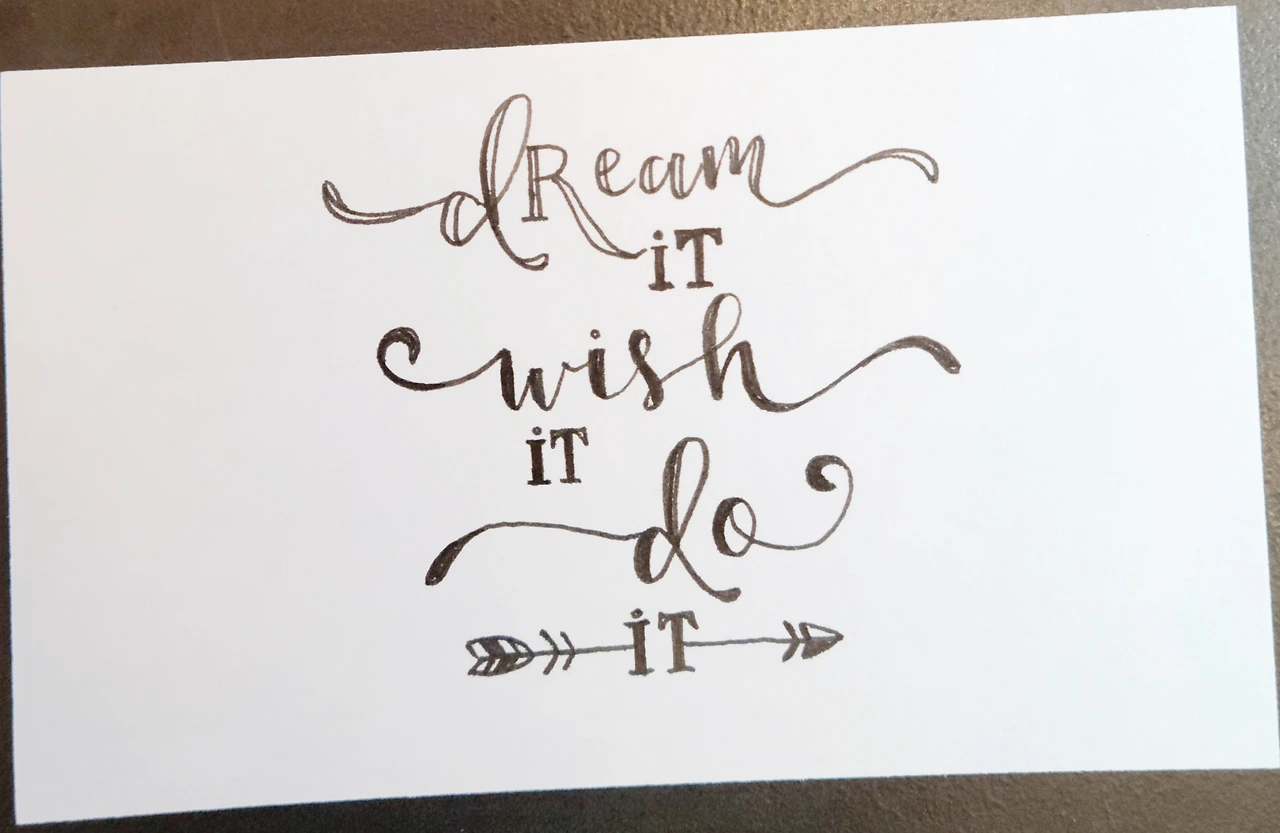 dReam
iT
wish
iT
do
iT